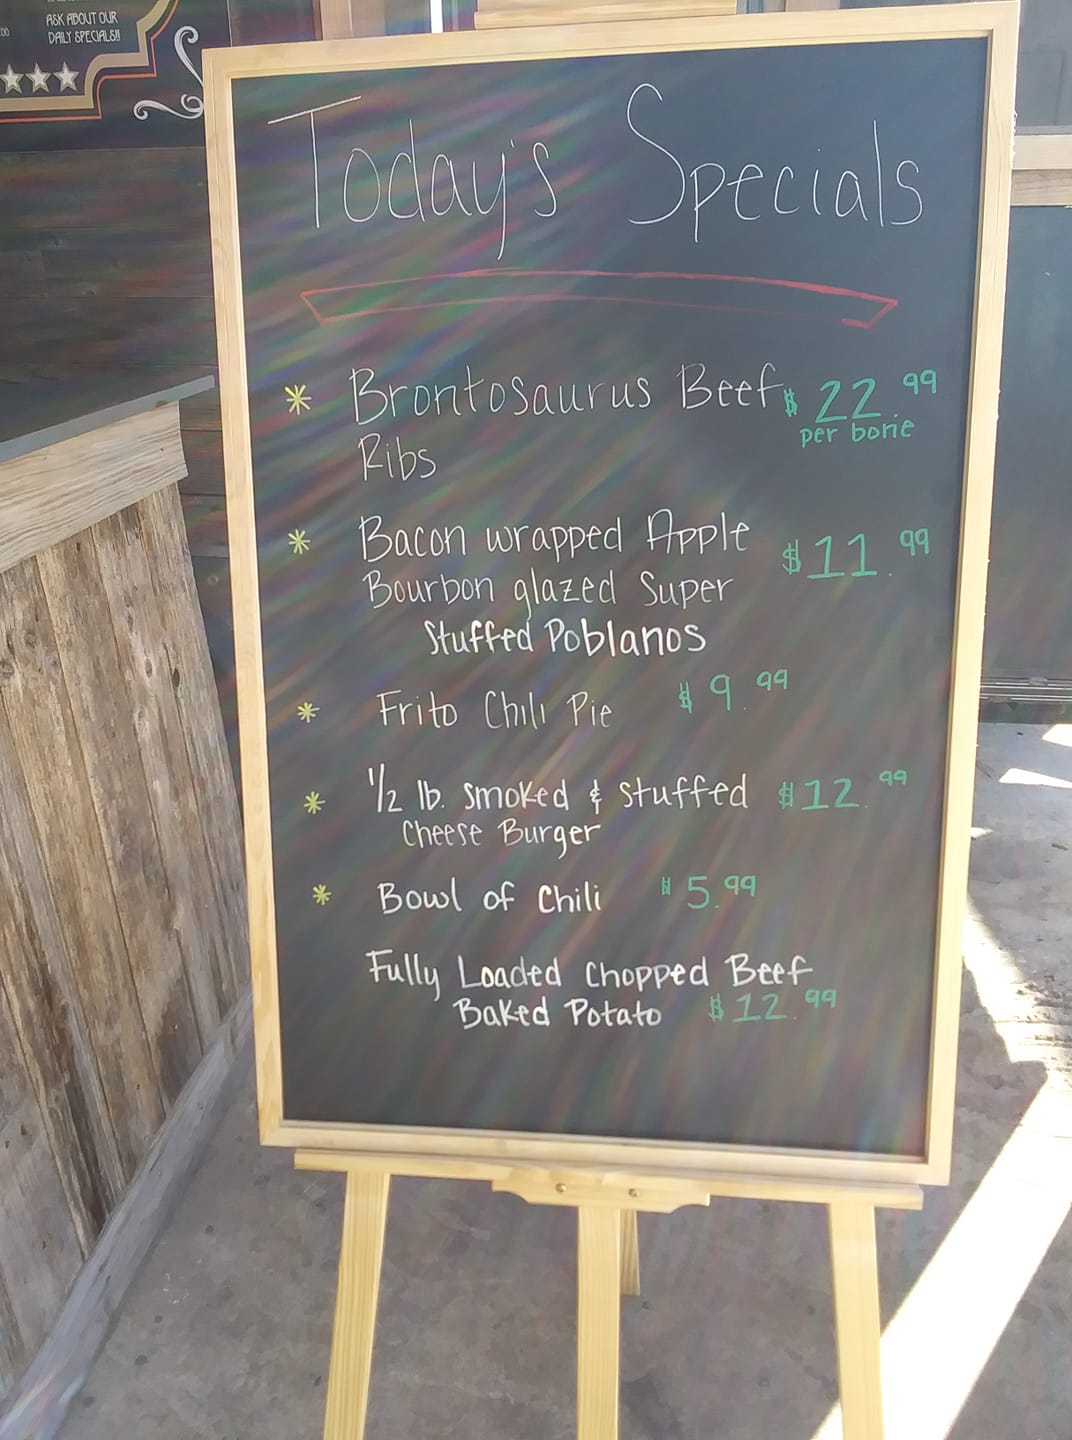 ASK ABOUT OUR
DAILY SPECIALS!!
Today's Specials
* Brontosaurus Beef $22.99
Ribs per bone
* Bacon wrapped Apple $11.99
Bourbon glazed Super
Stuffed Poblanos
* Frito Chili Pie $9.99
* 1/2 lb. smoked & stuffed $12.99
Cheese Burger
* Bowl of Chili $5.99
Fully Loaded Chopped Beef
Baked Potato $12.99